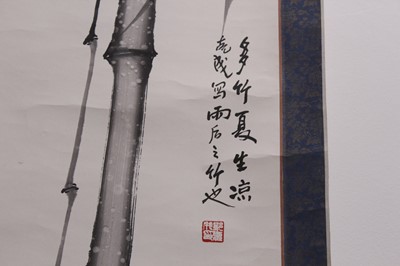 多竹夏生凉
写雨后之竹也